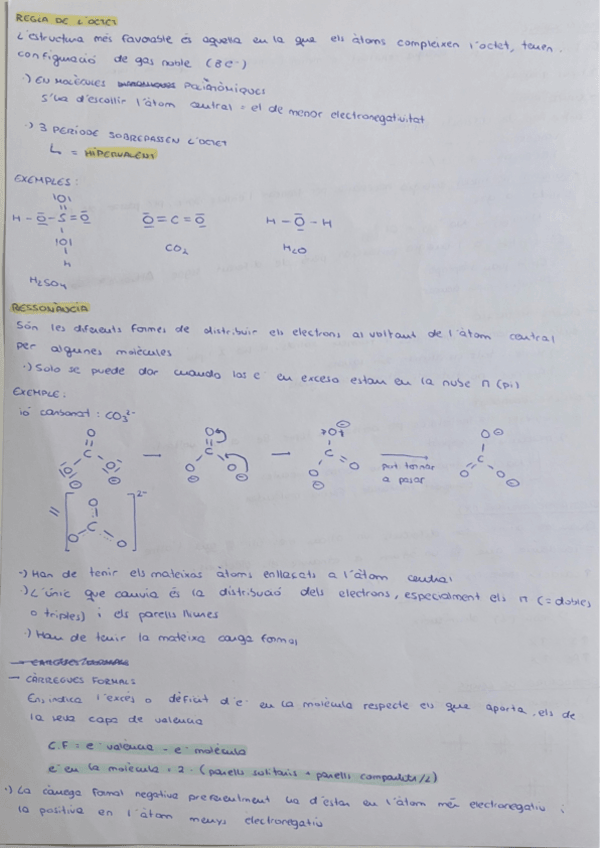 REGLA DE L'OCTET
L'estructura més favorable és aquella en la que els àtoms compleixen l'octet, tenen
configuració de gas noble (8e⁻)
·) EN MOLÈCULES POLIATÒMIQUES
S'ha d'escollir l'àtom central = el de menor electronegativitat
·) 3 PERÍODE SOBREPASSEN L'OCTET
↳ = HIPERVALENT
EXEMPLES:
|O|
H - O - S = O
|O|
H
H₂SO₄
O = C = O
CO₂
H - O - H
H₂O
RESSONÀNCIA
Són les diferents formes de distribuir els electrons al voltant de l'àtom central
per algunes molècules
·) Solo se puede dar cuando los e⁻ en exceso estan en la nube π (pi)
EXEMPLE:
ió carbonat: CO₃²⁻
O C O O → O C O O → O C O O
pot tornar
a passar
O C O O
= [O C O O]²⁻
·) Han de tenir els mateixos àtoms enllaçats a l'àtom central
·) L'únic que canvia és la distribució dels electrons, especialment els π (= dobles
o triples) i els parells lliures
·) Han de tenir la mateixa carga formal
— CÀRREGUES FORMALS
Ens indica l'excés o dèficit d'e⁻ en la molècula respecte els que aporta, els de
la seva capa de valència
C.F = e⁻ valència - e⁻ molècula
e⁻ en la molècula = 2 · (parells solitaris + parells compartits/2)
·) La càrrega formal negativa preferentment ha d'estar en l'àtom més electronegatiu i
la positiva en l'àtom menys electronegatiu